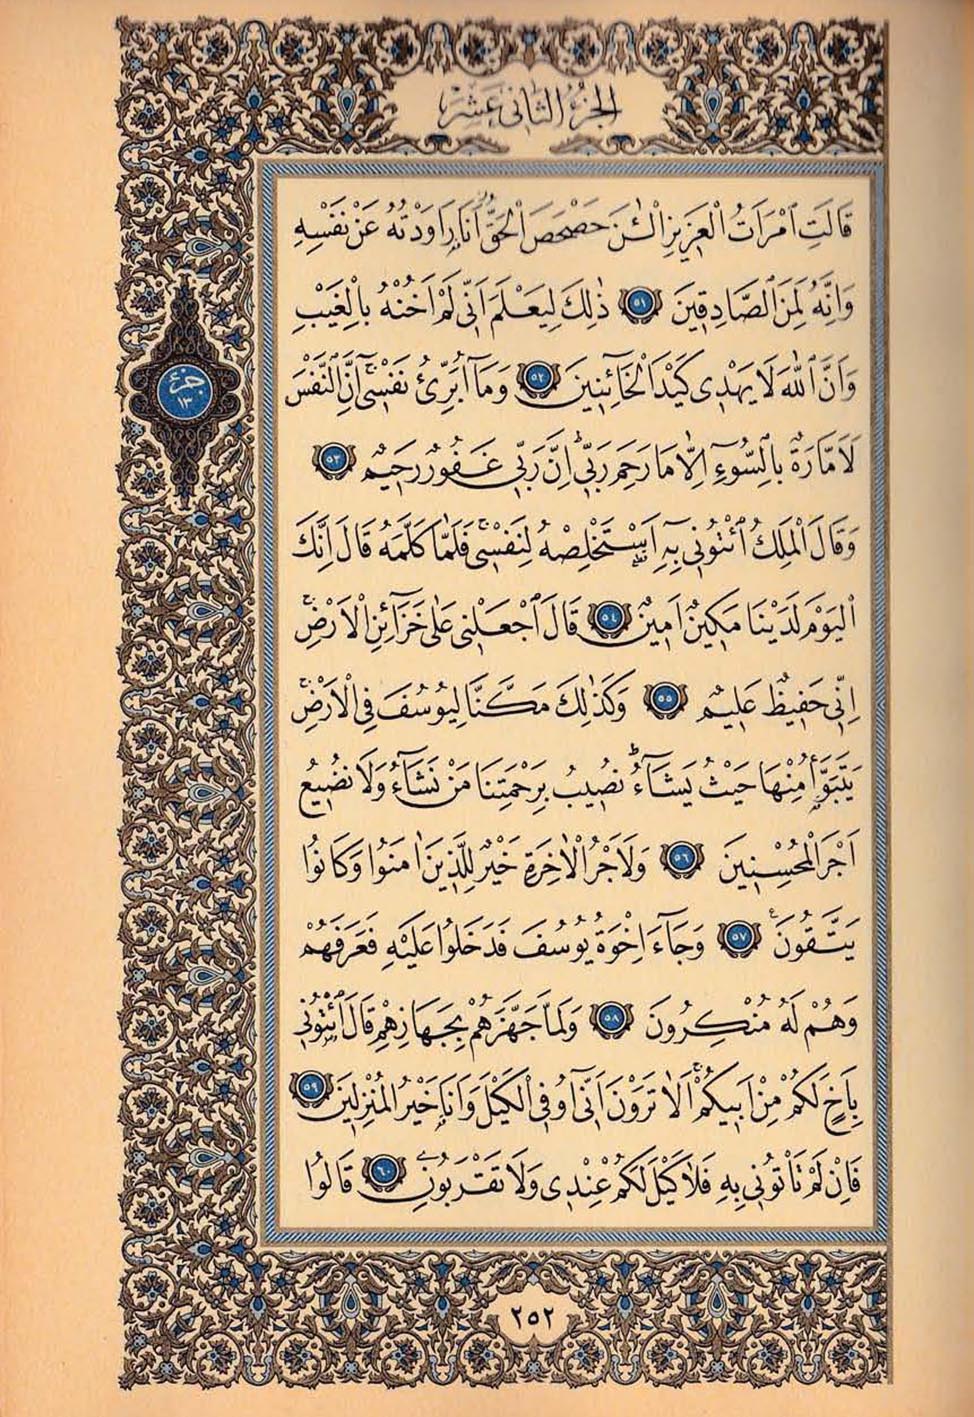 الجزء الثانى عشر
قَالَتِ ٱمْرَاَتُ الْعَزِيزِ الْـٰٔنَ حَصْحَصَ الْحَقُّ اَنَا۬ رَاوَدْتُهُ عَنْ نَفْسِهِ
وَاِنَّهُ لَمِنَ الصَّادِقِينَ ٥١ ذٰلِكَ لِيَعْلَمَ اَنِّى لَمْ اَخُنْهُ بِالْغَيْبِ
وَاَنَّ اللّٰهَ لَا يَهْدِى كَيْدَ الْخَٓائِنِينَ ٥٢ وَمَٓا اُبَرِّئُ نَفْسِى اِنَّ النَّفْسَ
جزء
١٣
لَاَمَّارَةٌ بِالسُّٓوءِ اِلَّا مَا رَحِمَ رَبِّى اِنَّ رَبِّى غَفُورٌ رَحِيمٌ ٥٣
وَقَالَ الْمَلِكُ ائْتُونِى بِهِٓ اَسْتَخْلِصْهُ لِنَفْسِى فَلَمَّا كَلَّمَهُ قَالَ اِنَّكَ
الْيَوْمَ لَدَيْنَا مَكِينٌ اَمِينٌ ٥٤ قَالَ اجْعَلْنِى عَلٰى خَزَٓائِنِ الْاَرْضِ
اِنِّى حَفِيظٌ عَلِيمٌ ٥٥ وَكَذٰلِكَ مَكَّنَّا لِيُوسُفَ فِى الْاَرْضِ
يَتَبَوَّأُ مِنْهَا حَيْثُ يَشَٓاءُ نُصِيبُ بِرَحْمَتِنَا مَنْ نَشَٓاءُ وَلَا نُضِيعُ
اَجْرَ الْمُحْسِنِينَ ٥٦ وَلَاَجْرُ الْاٰخِرَةِ خَيْرٌ لِلَّذِينَ اٰمَنُوا وَكَانُوا
يَتَّقُونَ ٥٧ وَجَٓاءَ اِخْوَةُ يُوسُفَ فَدَخَلُوا عَلَيْهِ فَعَرَفَهُمْ
وَهُمْ لَهُ مُنْكِرُونَ ٥٨ وَلَمَّا جَهَّزَهُمْ بِجَهَازِهِمْ قَالَ ائْتُونِى
بِاَخٍ لَكُمْ مِنْ اَبِيكُمْ اَلَا تَرَوْنَ اَنِّٓى اُوفِى الْكَيْلَ وَاَنَا۬ خَيْرُ الْمُنْزِلِينَ ٥٩
فَاِنْ لَمْ تَأْتُونِى بِهِ فَلَا كَيْلَ لَكُمْ عِنْدِى وَلَا تَقْرَبُونِ ٦٠ قَالُوا
٢٥٢